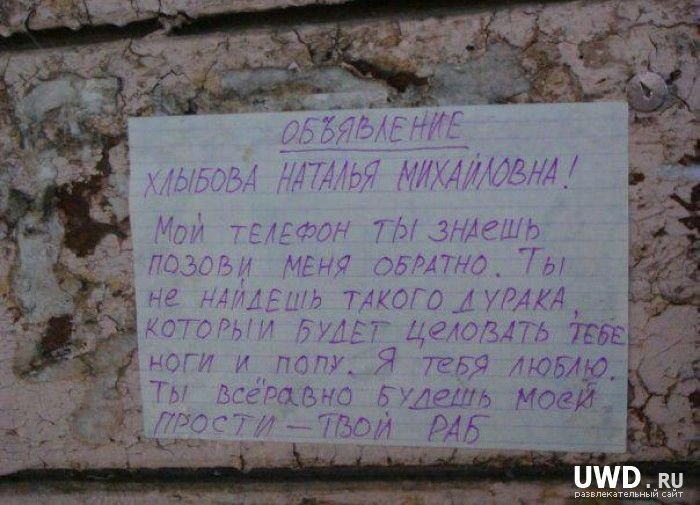 ОБЪЯВЛЕНИЕ
ХЛЫБОВА НАТАЛЬЯ МИХАЙЛОВНА!
МОЙ ТЕЛЕФОН ТЫ ЗНАЕШЬ
ПОЗОВИ МЕНЯ ОБРАТНО. ТЫ
НЕ НАЙДЕШЬ ТАКОГО ДУРАКА,
КОТОРЫЙ БУДЕТ ЦЕЛОВАТЬ ТЕБЕ
НОГИ И ПОПУ. Я ТЕБЯ ЛЮБЛЮ.
ТЫ ВСЁРАВНО БУДЕШЬ МОЕЙ
ПРОСТИ — ТВОЙ РАБ
UWD.RU
развлекательный сайт